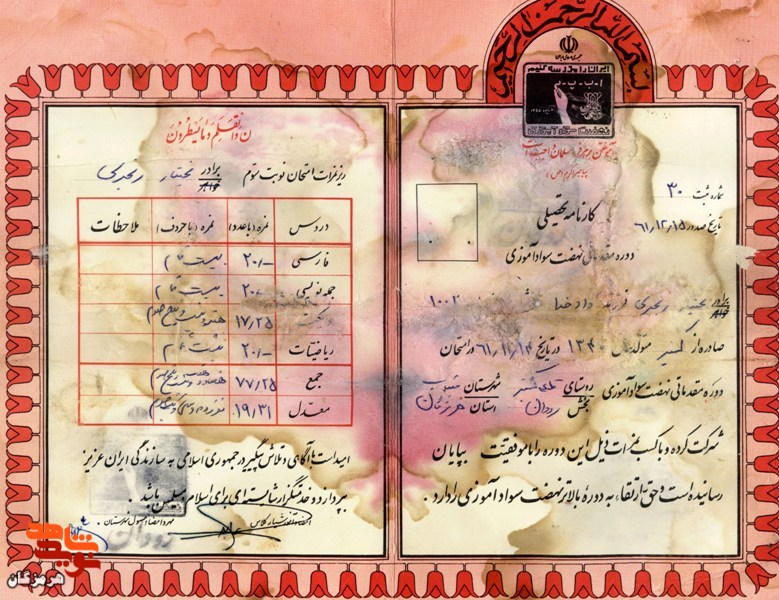 بسم الله الرحمن الرحیم
جمهوری اسلامی ایران
ایران را مدرسه کنیم
ا - ب - پ - د
نهضت سوادآموزی
پیامبر اکرم (ص)
شماره ثبت ۳۰
تاریخ صدور ۶۱/۱۲/۱۵
کارنامه تحصیلی
دوره مقدماتی نهضت سوادآموزی
برادر بختیار رنجبری فرزند دادخدا ۱۰۰۲
صادره از گلمیر متولد سال ۱۳۴۰ در تاریخ ۶۱/۱۱/۱۴ در امتحان
دوره مقدماتی نهضت سوادآموزی روستای شهرستان میناب
بخش رودان استان هرمزگان
شرکت کرده و با کسب نمرات ذیل این دوره را با موفقیت بپایان
رسانیده است و حق ارتقاء به دوره بالاتر نهضت سوادآموزی را دارد .
ن والقلم و ما یسطرون
ریز نمرات امتحان نوبت سوم برادر بختیار رنجبری
دروس نمره (با عدد) نمره (با حروف) ملاحظات
فارسی ۲۰/- بیست تمام
جمله نویسی ۲۰/- بیست تمام
دیکته ۱۷/۲۵ هفده و بیست و پنج صدم
ریاضیات ۲۰/- بیست تمام
جمع ۷۷/۲۵ هفتاد و هفت و بیست و پنج صدم
معدل ۱۹/۳۱ نوزده و سی و یک صدم
امید است با آگاهی و تلاش پیگیر در جمهوری اسلامی به سازندگی ایران عزیز
بپردازد و خدمتگزار شایسته ای برای اسلام و میهن باشد .
امضاء آموزشیار کلاس
مهر و امضاء مسئول شهرستان
رودان
نوید شاهد
هرمزگان